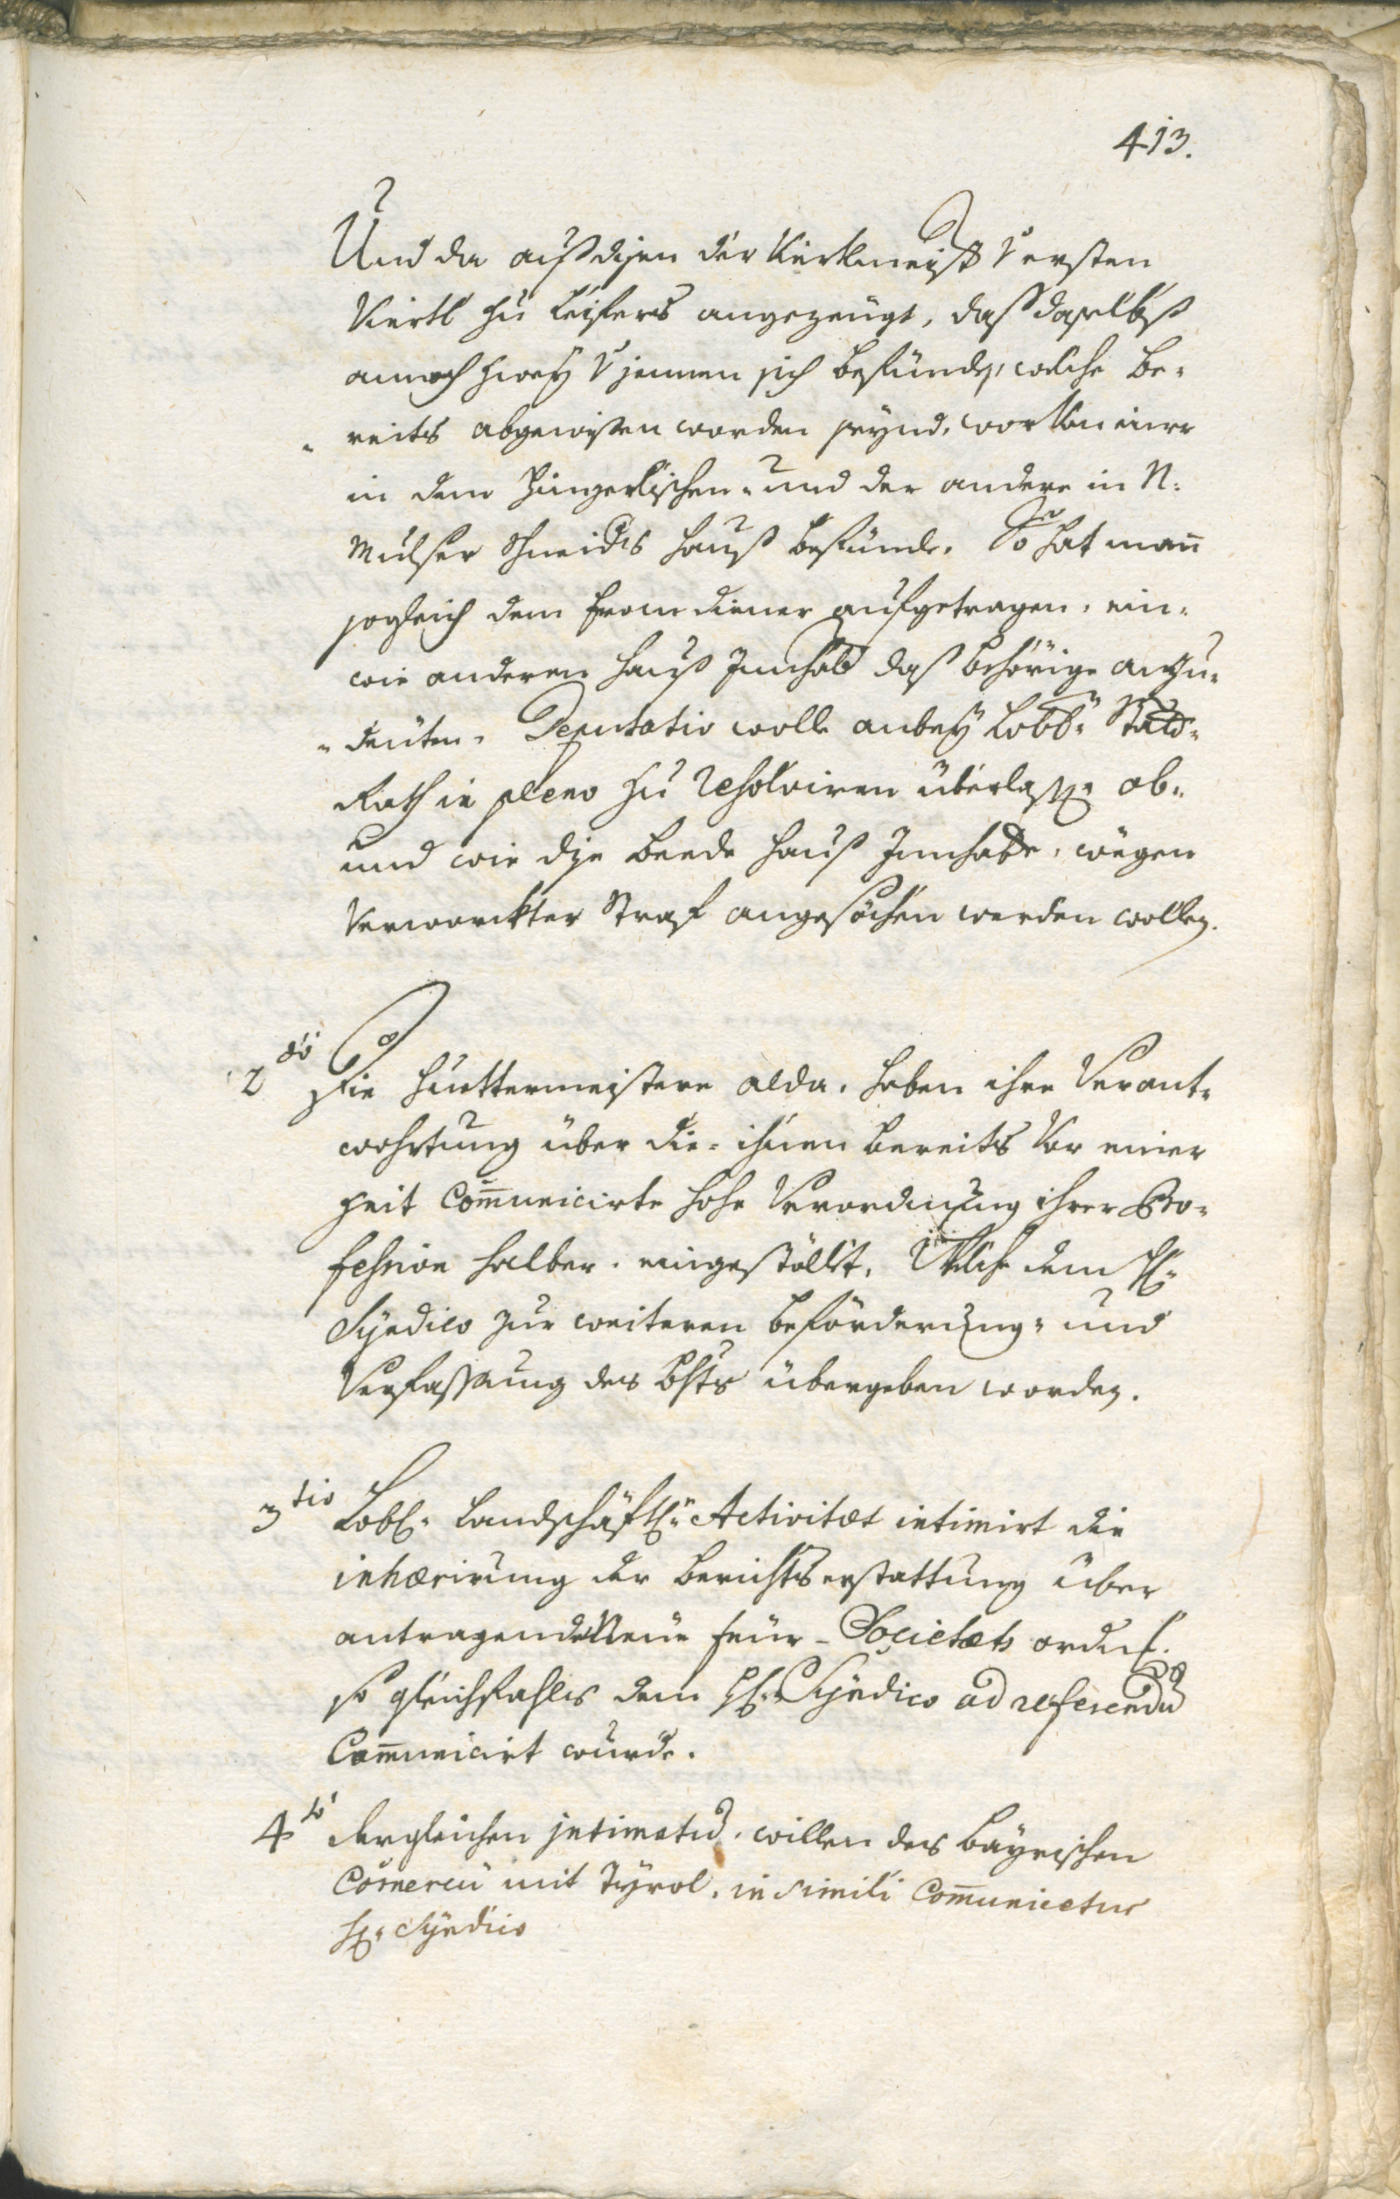 413.
Und da auß disen der Viertlmeist. ersten
Viertl zu Leifers angezeugt, daß daselbst
annoch zwey jennen sich befünden, welche be-
reits abgewisen worden seynd, wor Von einer
in dem Hingerlischen- und der andere in N:
Mulser Schneiders Hauß befünde. So hat mann
sogleich dem frondiener aufgetragen, ein-
wie anderen Hauß Innhab. daß behörige anzu-
deüten. Deputatio wolle anbey Löbl: Statt-
Rath in pleno zu resolviren überlassen ob-
und wie dise beede Hauß Innhabere, wögen
Verwürckter Straf angesöchen werden wollen.
2do Die Huettermeistere alda, haben ihre Verant-
wohrtung über die- ihnen bereits Vor einer
Zeit Communicirte hohe Verordnung ihrer Pro-
fession halber, eingestöllt, Welche dem H:
Syndico zur weiteren beförderung- und
Verfassung des brts übergeben worden.
3tio Löbl: Landschäftl: Activitæt intimirt die
inhærirung der berichtserstattung über
antragende Neüe feür-Societæts ordn:
so gleichfahls dem H: Syndico ad referendũ
Communicirt wurde.
4to dergleichen intimatũ, willen des bayrischen
Comercii mit Tyrol, in simili Communicetur
H: Syndico